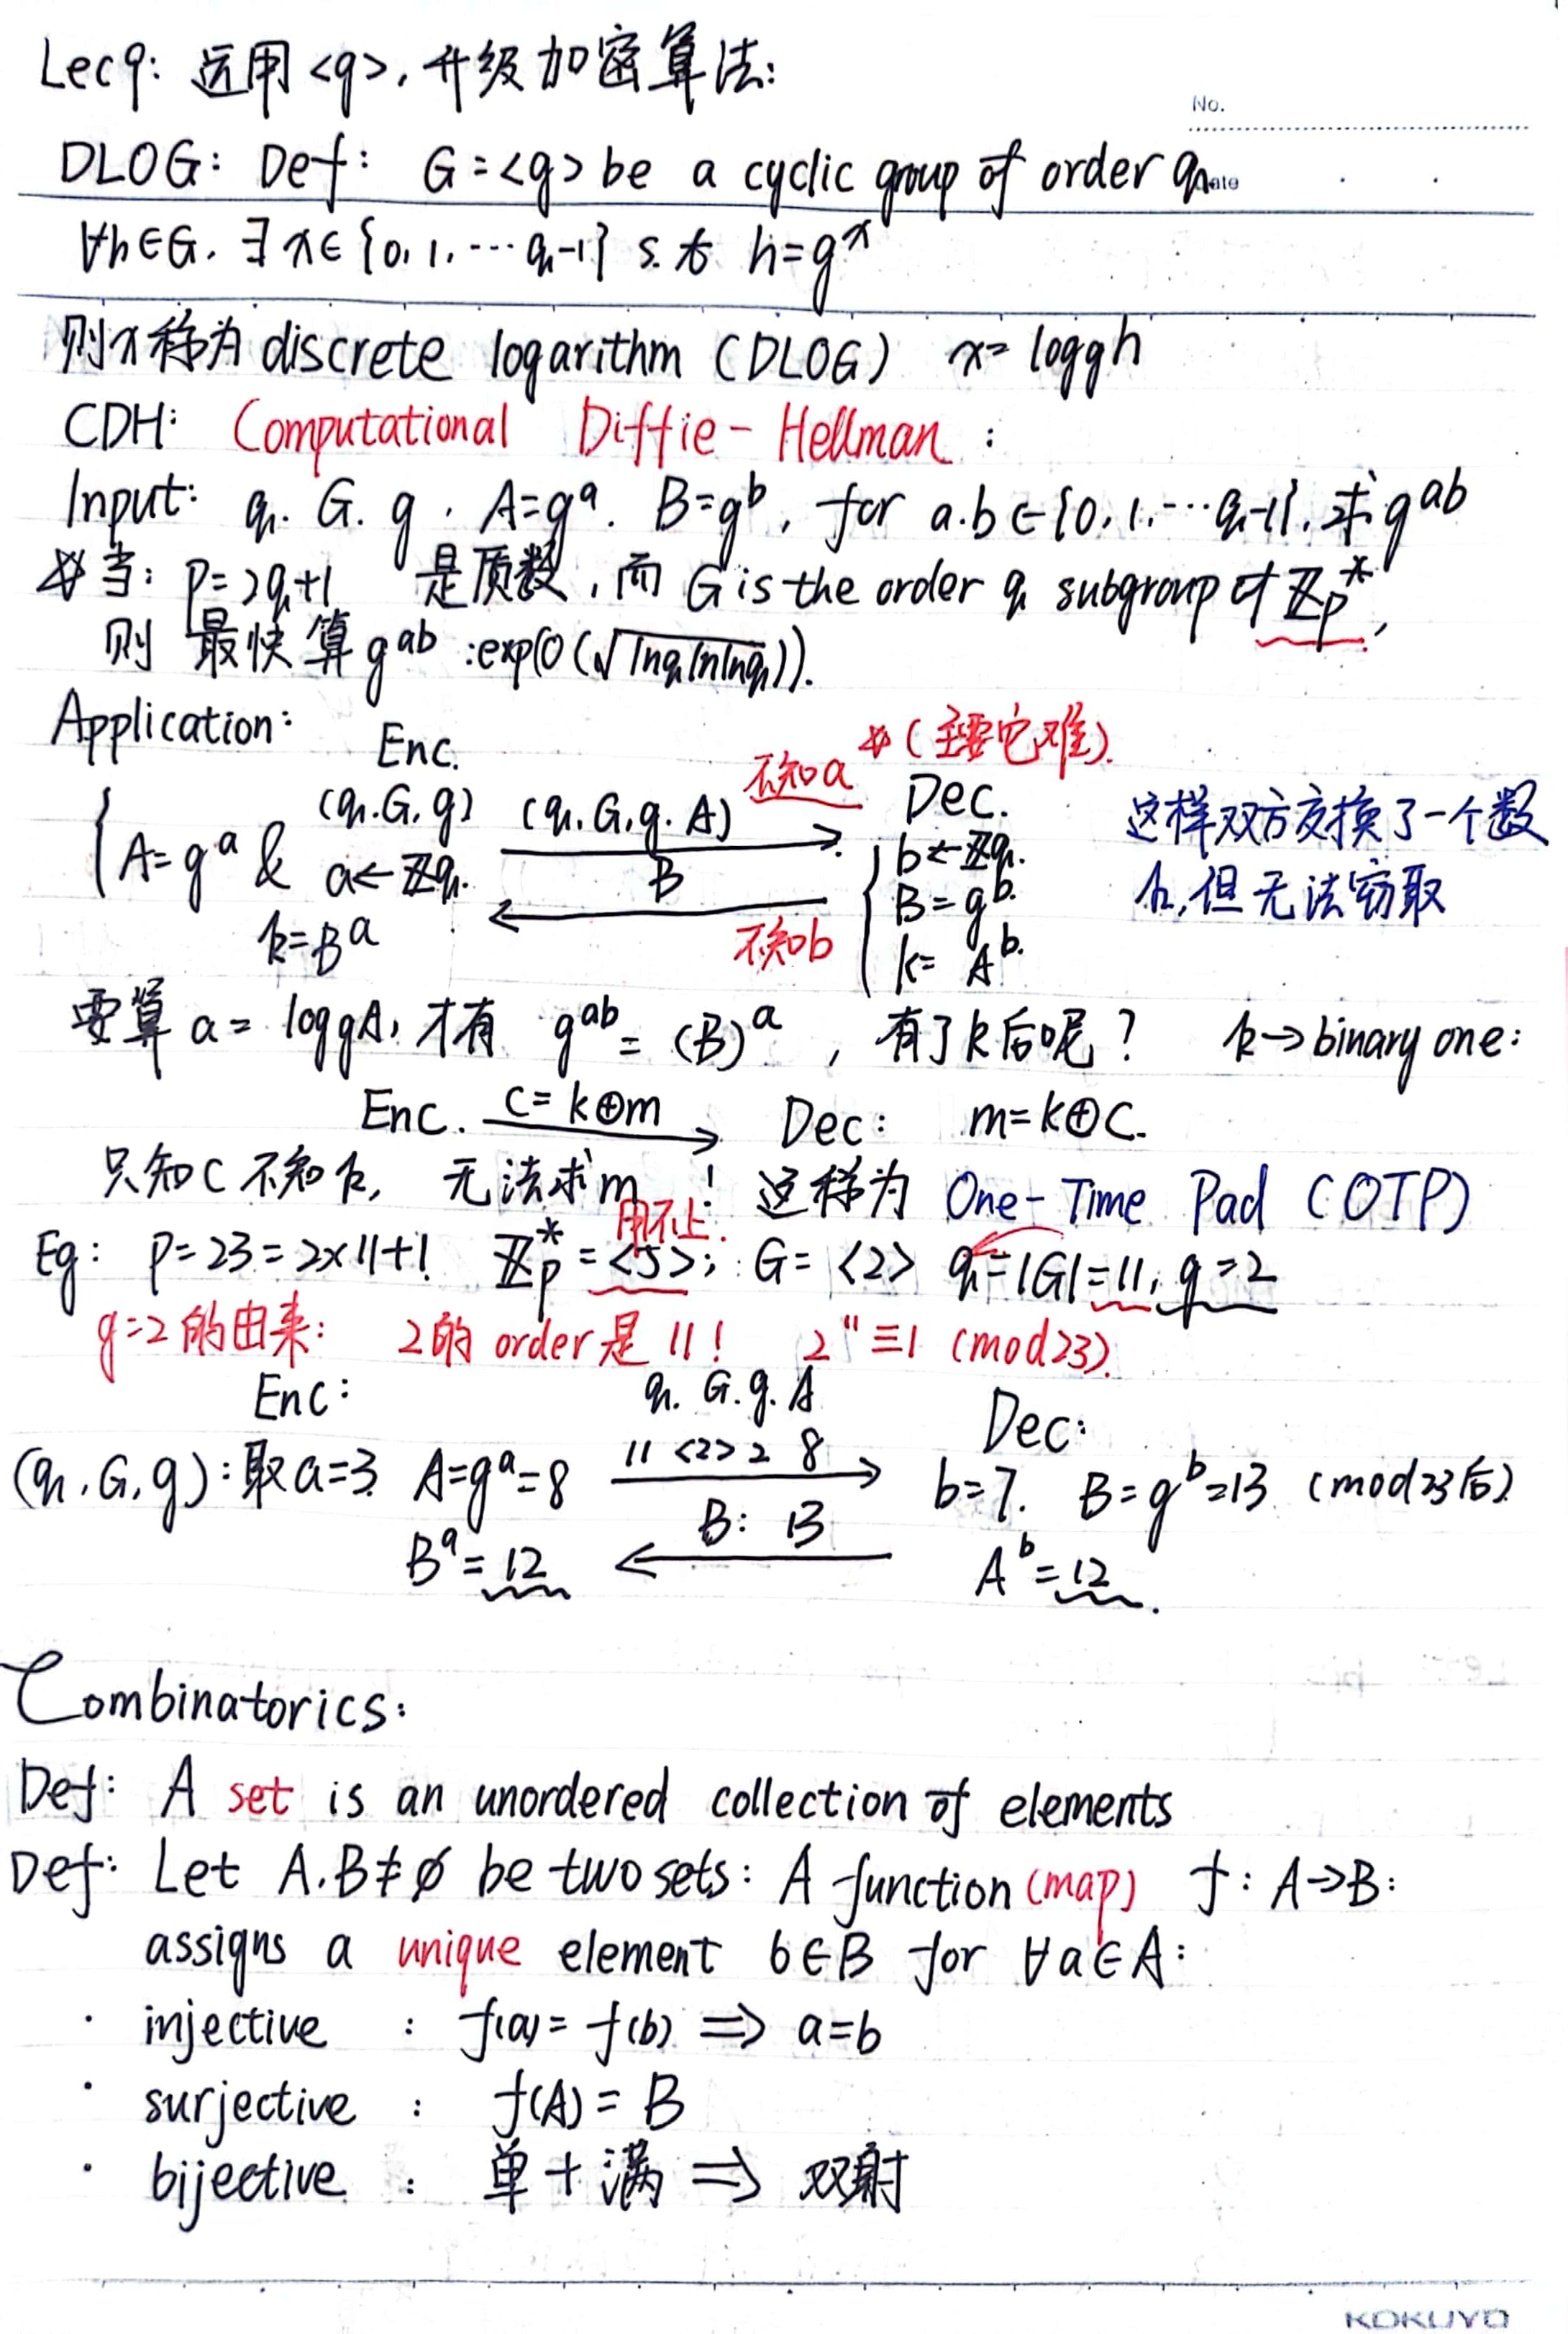 Lec9: 运用<g>,升级加密算法:
No.
DLOG: Def: G=<g> be a cyclic group of order q
Date
∀h∈G. ∃x∈{0,1,…q-1} s.t h=g^x
则x称为 discrete logarithm (DLOG) x=log_g h
CDH: Computational Diffie-Hellman:
Input: q. G. g. A=g^a. B=g^b, for a.b∈{0,1,…q-1}, 求g^ab
* 当: p=2q+1 是质数,而 G is the order q subgroup of Z_p^*,
则 最快算 g^ab : exp(O(√(lnq lnlnq))).
Application:
Enc.
不知a *(主要它难).
(q.G.g) (q.G.g.A) Dec.
{ A=g^a & a←Z_q. → b←Z_q.
B B=g^b.
k=B^a ← 不知b k=A^b.
这样双方交换了一个数
k,但无法窃取
要算 a=log_g A, 才有 g^ab=(B)^a , 有了k后呢? k→binary one:
Enc. c=k⊕m → Dec: m=k⊕c.
只知c不知k, 无法求m! 这称为 One-Time Pad (OTP)
用不上.
Eg: p=23=2×11+1 Z_p^*=<5>; G=<2> q=|G|=11, g=2
g=2的由来: 2的order是11! 2^11≡1 (mod23).
Enc: q. G. g. A Dec:
(q,G,g):取a=3. A=g^a=8 11 <2> 2 8 → b=7. B=g^b=13 (mod23后)
B^a=12 ← B: 13 A^b=12.
Combinatorics:
Def: A set is an unordered collection of elements
Def: Let A.B≠∅ be two sets: A function (map) f: A→B:
assigns a unique element b∈B for ∀a∈A:
· injective : f(a)=f(b) ⇒ a=b
· surjective : f(A)=B
· bijective : 单+满 ⇒ 双射
KOKUYO